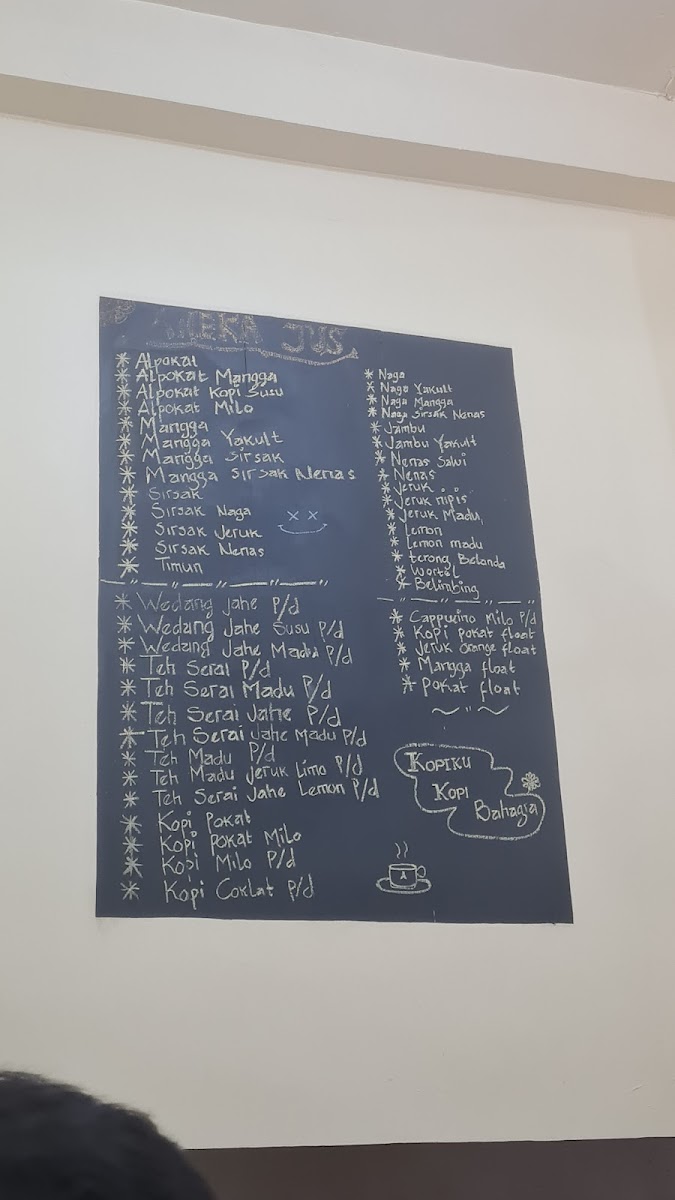 ANEKA JUS
* Alpokat
* Alpokat Mangga
* Alpokat Kopi Susu
* Alpokat Milo
* Mangga
* Mangga Yakult
* Mangga Sirsak
* Mangga Sirsak Nenas
* Sirsak
* Sirsak Naga
* Sirsak Jeruk
* Sirsak Nenas
* Timun
* Wedang Jahe P/d
* Wedang Jahe Susu P/d
* Wedang Jahe Madu P/d
* Teh Serai P/d
* Teh Serai Madu P/d
* Teh Serai Jahe P/d
* Teh Serai Jahe Madu P/d
* Teh Madu P/d
* Teh Madu Jeruk Limo P/d
* Teh Serai Jahe Lemon P/d
* Kopi Pokat
* Kopi Pokat Milo
* Kopi Milo P/d
* Kopi Coklat P/d
* Naga
* Naga Yakult
* Naga Mangga
* Naga Sirsak Nenas
* Jambu
* Jambu Yakult
* Nenas Sawi
* Nenas
* Jeruk
* Jeruk nipis
* Jeruk Madu
* Lemon
* Lemon madu
* terong Belanda
* Wortel
* Belimbing
* Cappucino Milo P/d
* Kopi pokat float
* Jeruk Orange float
* Mangga float
* Pokat float
KOPIKU
KOPI
Bahagia
A